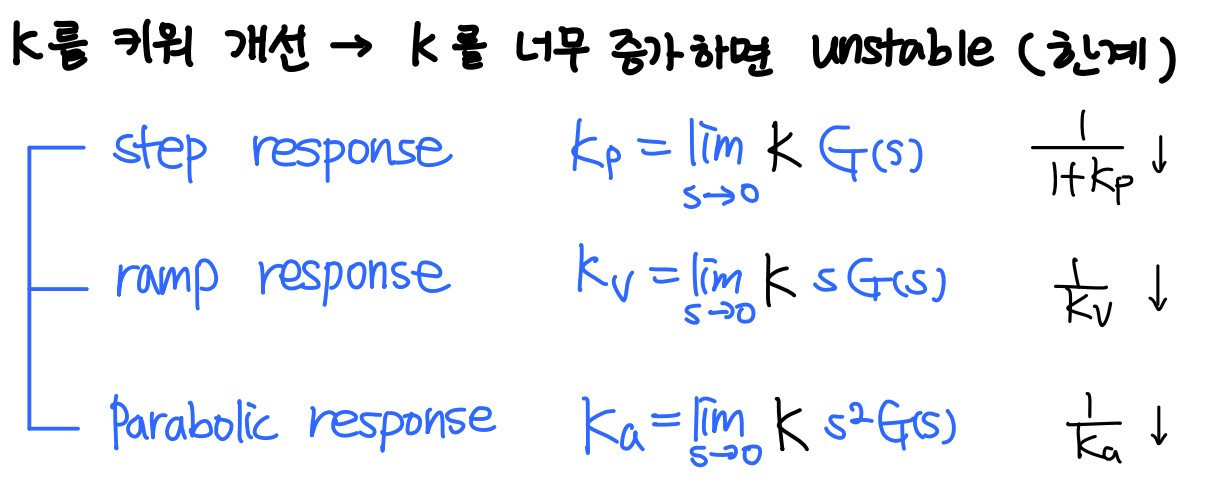 K를 키워 개선 → K를 너무 증가하면 unstable (한계)
step response Kp = lim s→0 K G(s) 1/(1+Kp) ↓
ramp response Kv = lim s→0 K sG(s) 1/Kv ↓
Parabolic response Ka = lim s→0 K s²G(s) 1/Ka ↓